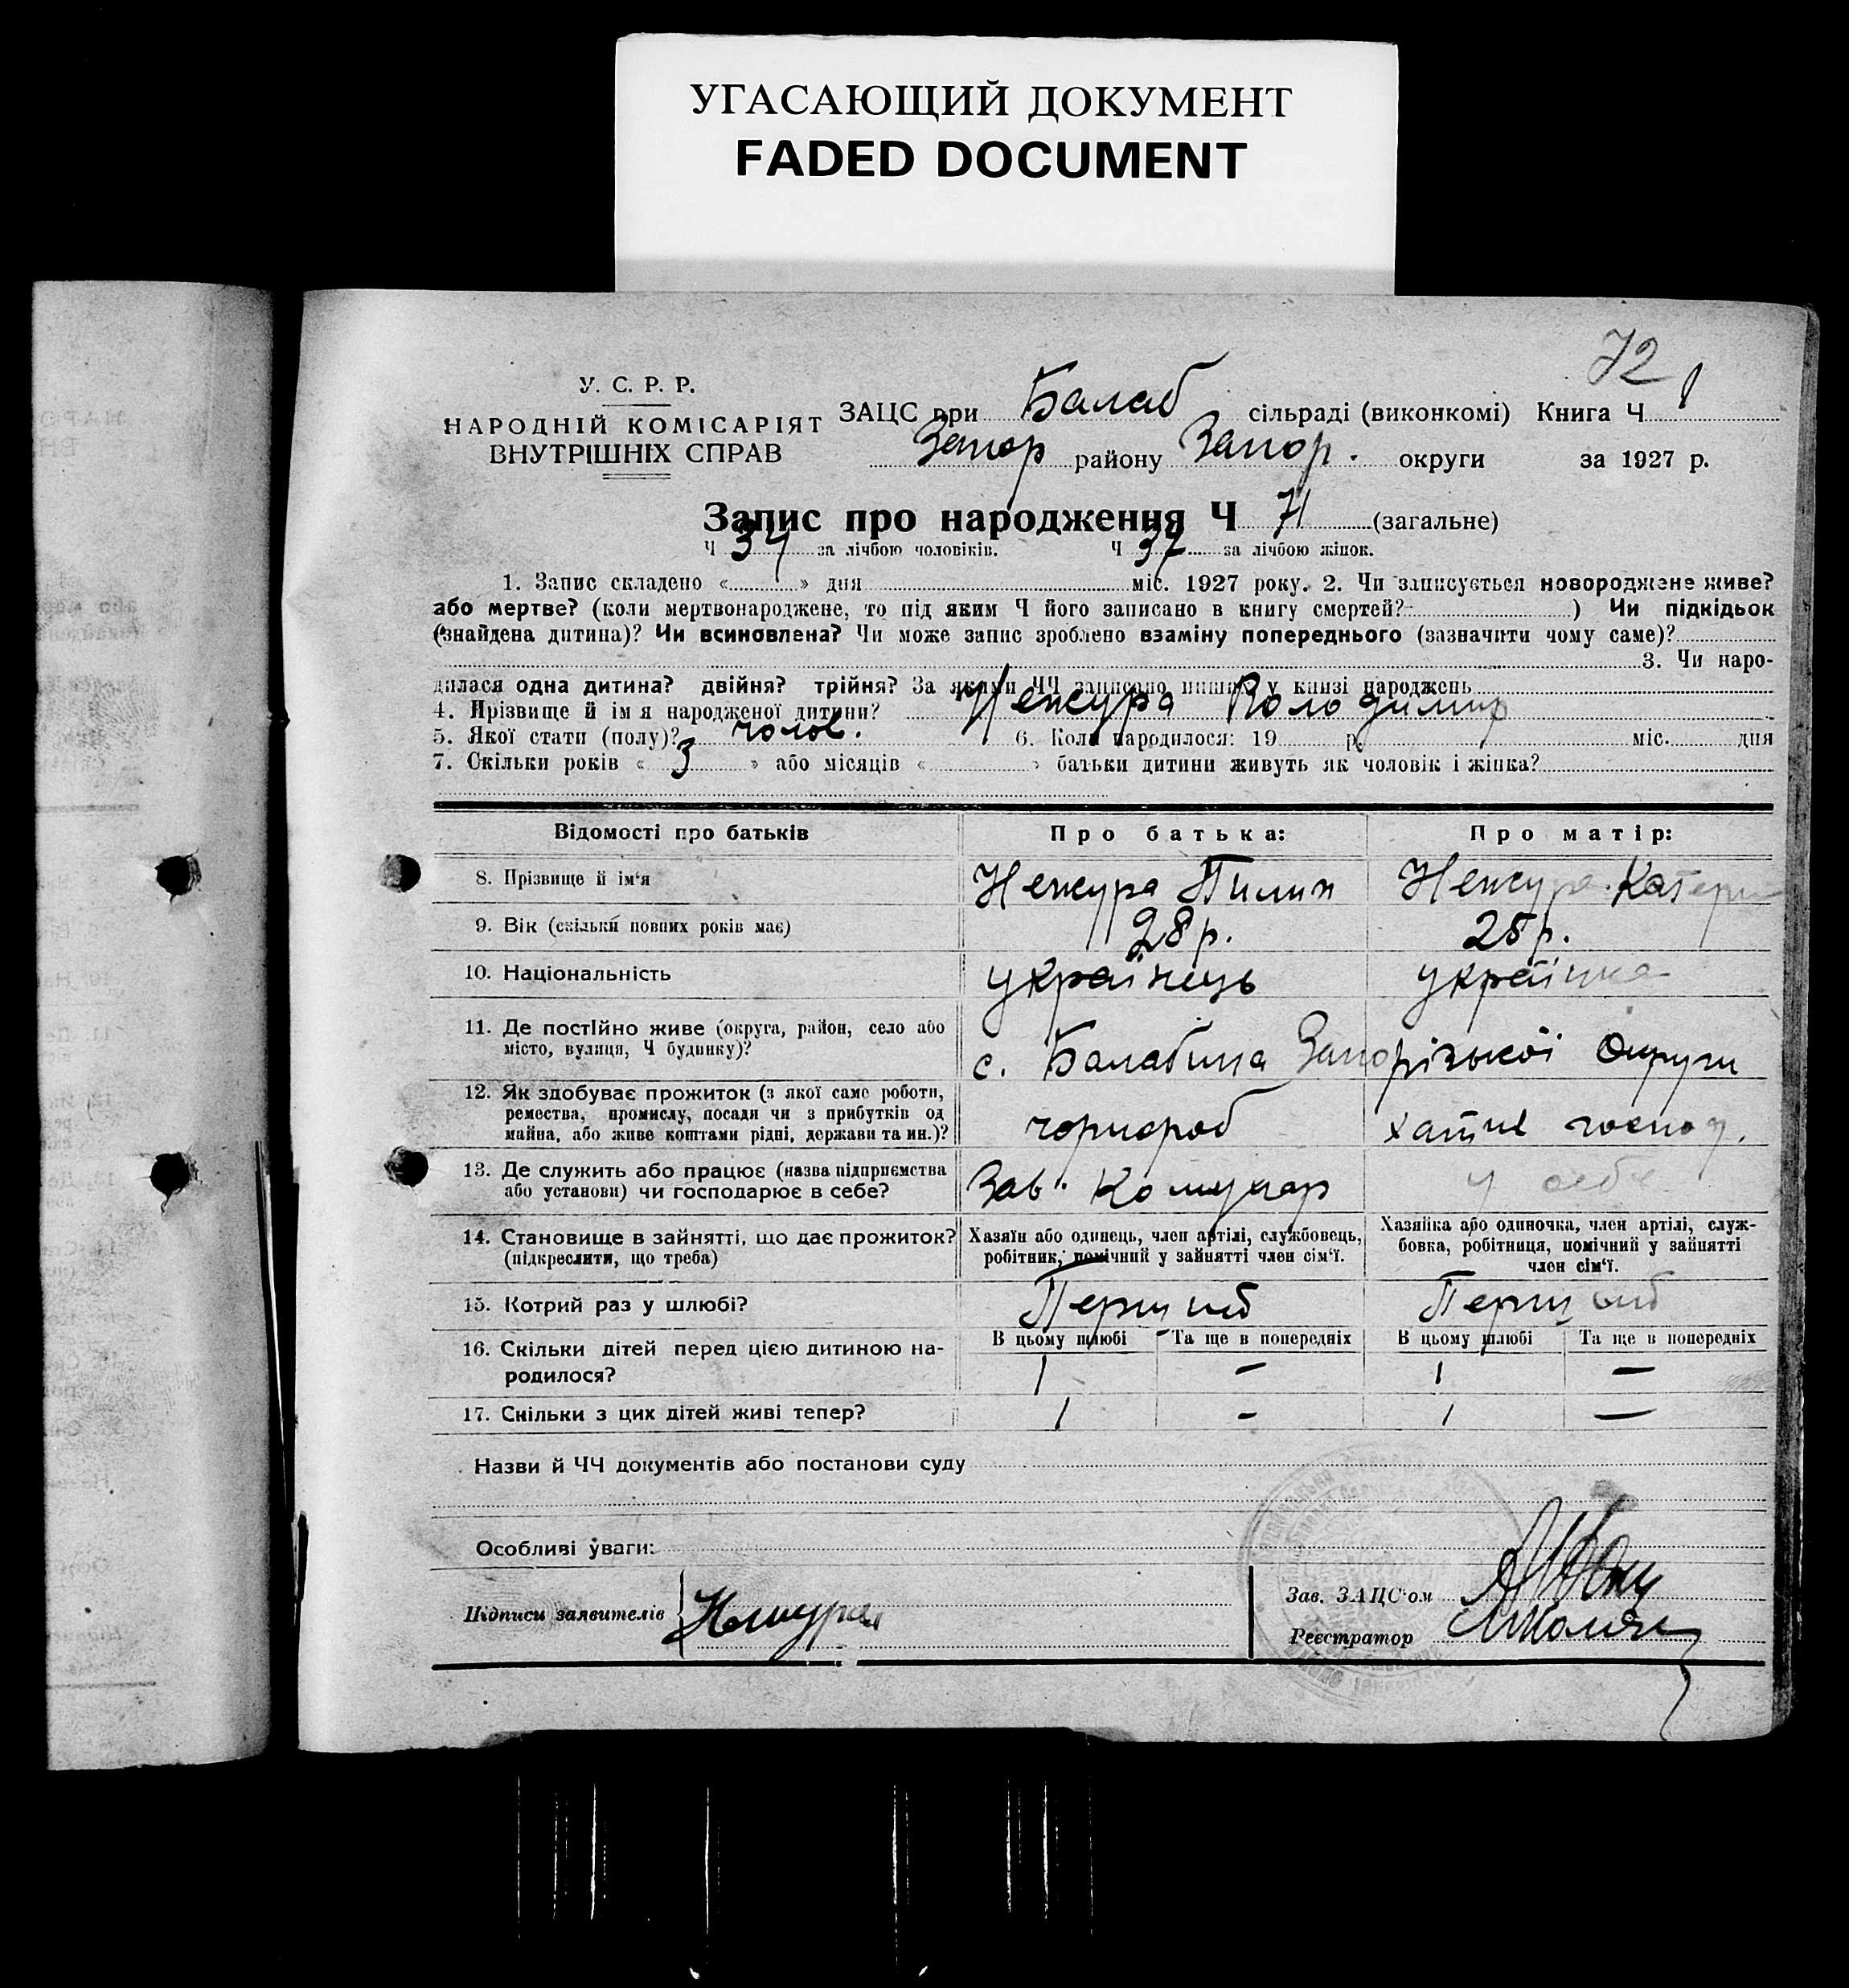 УГАСАЮЩИЙ ДОКУМЕНТ
FADED DOCUMENT
72
У. С. Р. Р.
НАРОДНІЙ КОМІСАРІЯТ
ВНУТРІШНІХ СПРАВ
ЗАЦС при Балаб сільраді (виконкомі) Книга Ч 1
Запор району Запор. округи за 1927 р.
Запис про народження Ч 71 (загальне)
Ч 34 за лічбою чоловіків. Ч 37 за лічбою жінок.
1. Запис складено « » дня міс. 1927 року. 2. Чи записується новороджене живе?
або мертве? (коли мертвонароджене, то під яким Ч його записано в книгу смертей? ) Чи підкідьок
(знайдена дитина)? Чи всиновлена? Чи може запис зроблено взаміну попереднього (зазначити чому саме)?
3. Чи наро-
дилася одна дитина? двійня? трійня? За якими ЧЧ записано инших у книзі народжень
4. Прізвище й ім я народженої дитини? Ненжура Володимир
5. Якої стати (полу)? чолов. 6. Коли народилося: 19 р. міс. дня
7. Скільки років « 3 » або місяців « » батьки дитини живуть як чоловік і жінка?
Відомості про батьків Про батька: Про матір:
8. Прізвище й ім‘я Ненжура Пилип Ненжура Катери
9. Вік (скільки повних років має) 28 р. 25 р.
10. Національність українець українка
11. Де постійно живе (округа, район, село або
місто, вулиця, Ч будинку)? с. Балабина Запорізької Округи
12. Як здобуває прожиток (з якої саме роботи,
ремества, промислу, посади чи з прибутків од
майна, або живе коштами рідні, держави та ин.)? чорнороб хатнє господ.
13. Де служить або працює (назва підприємства
або установи) чи господарює в себе? Зав. Комунар у себе
14. Становище в зайнятті, що дає прожиток?
(підкреслити, що треба)
Хазяїн або одинець, член артілі, службовець,
робітник, помічний у зайнятті член сім‘ї.
Хазяйка або одиночка, член артілі, служ-
бовка, робітниця, помічний у зайнятті
член сім‘ї.
15. Котрий раз у шлюбі? Перший Перший
16. Скільки дітей перед цією дитиною на-
родилося?
В цьому шлюбі Та ще в попередніх В цьому шлюбі Та ще в попередніх
1 — 1 —
17. Скільки з цих дітей живі тепер? 1 - 1 —
Назви й ЧЧ документів або постанови суду
Особливі уваги:
Підписи заявителів
Зав. ЗАЦС‘ом
Реєстратор